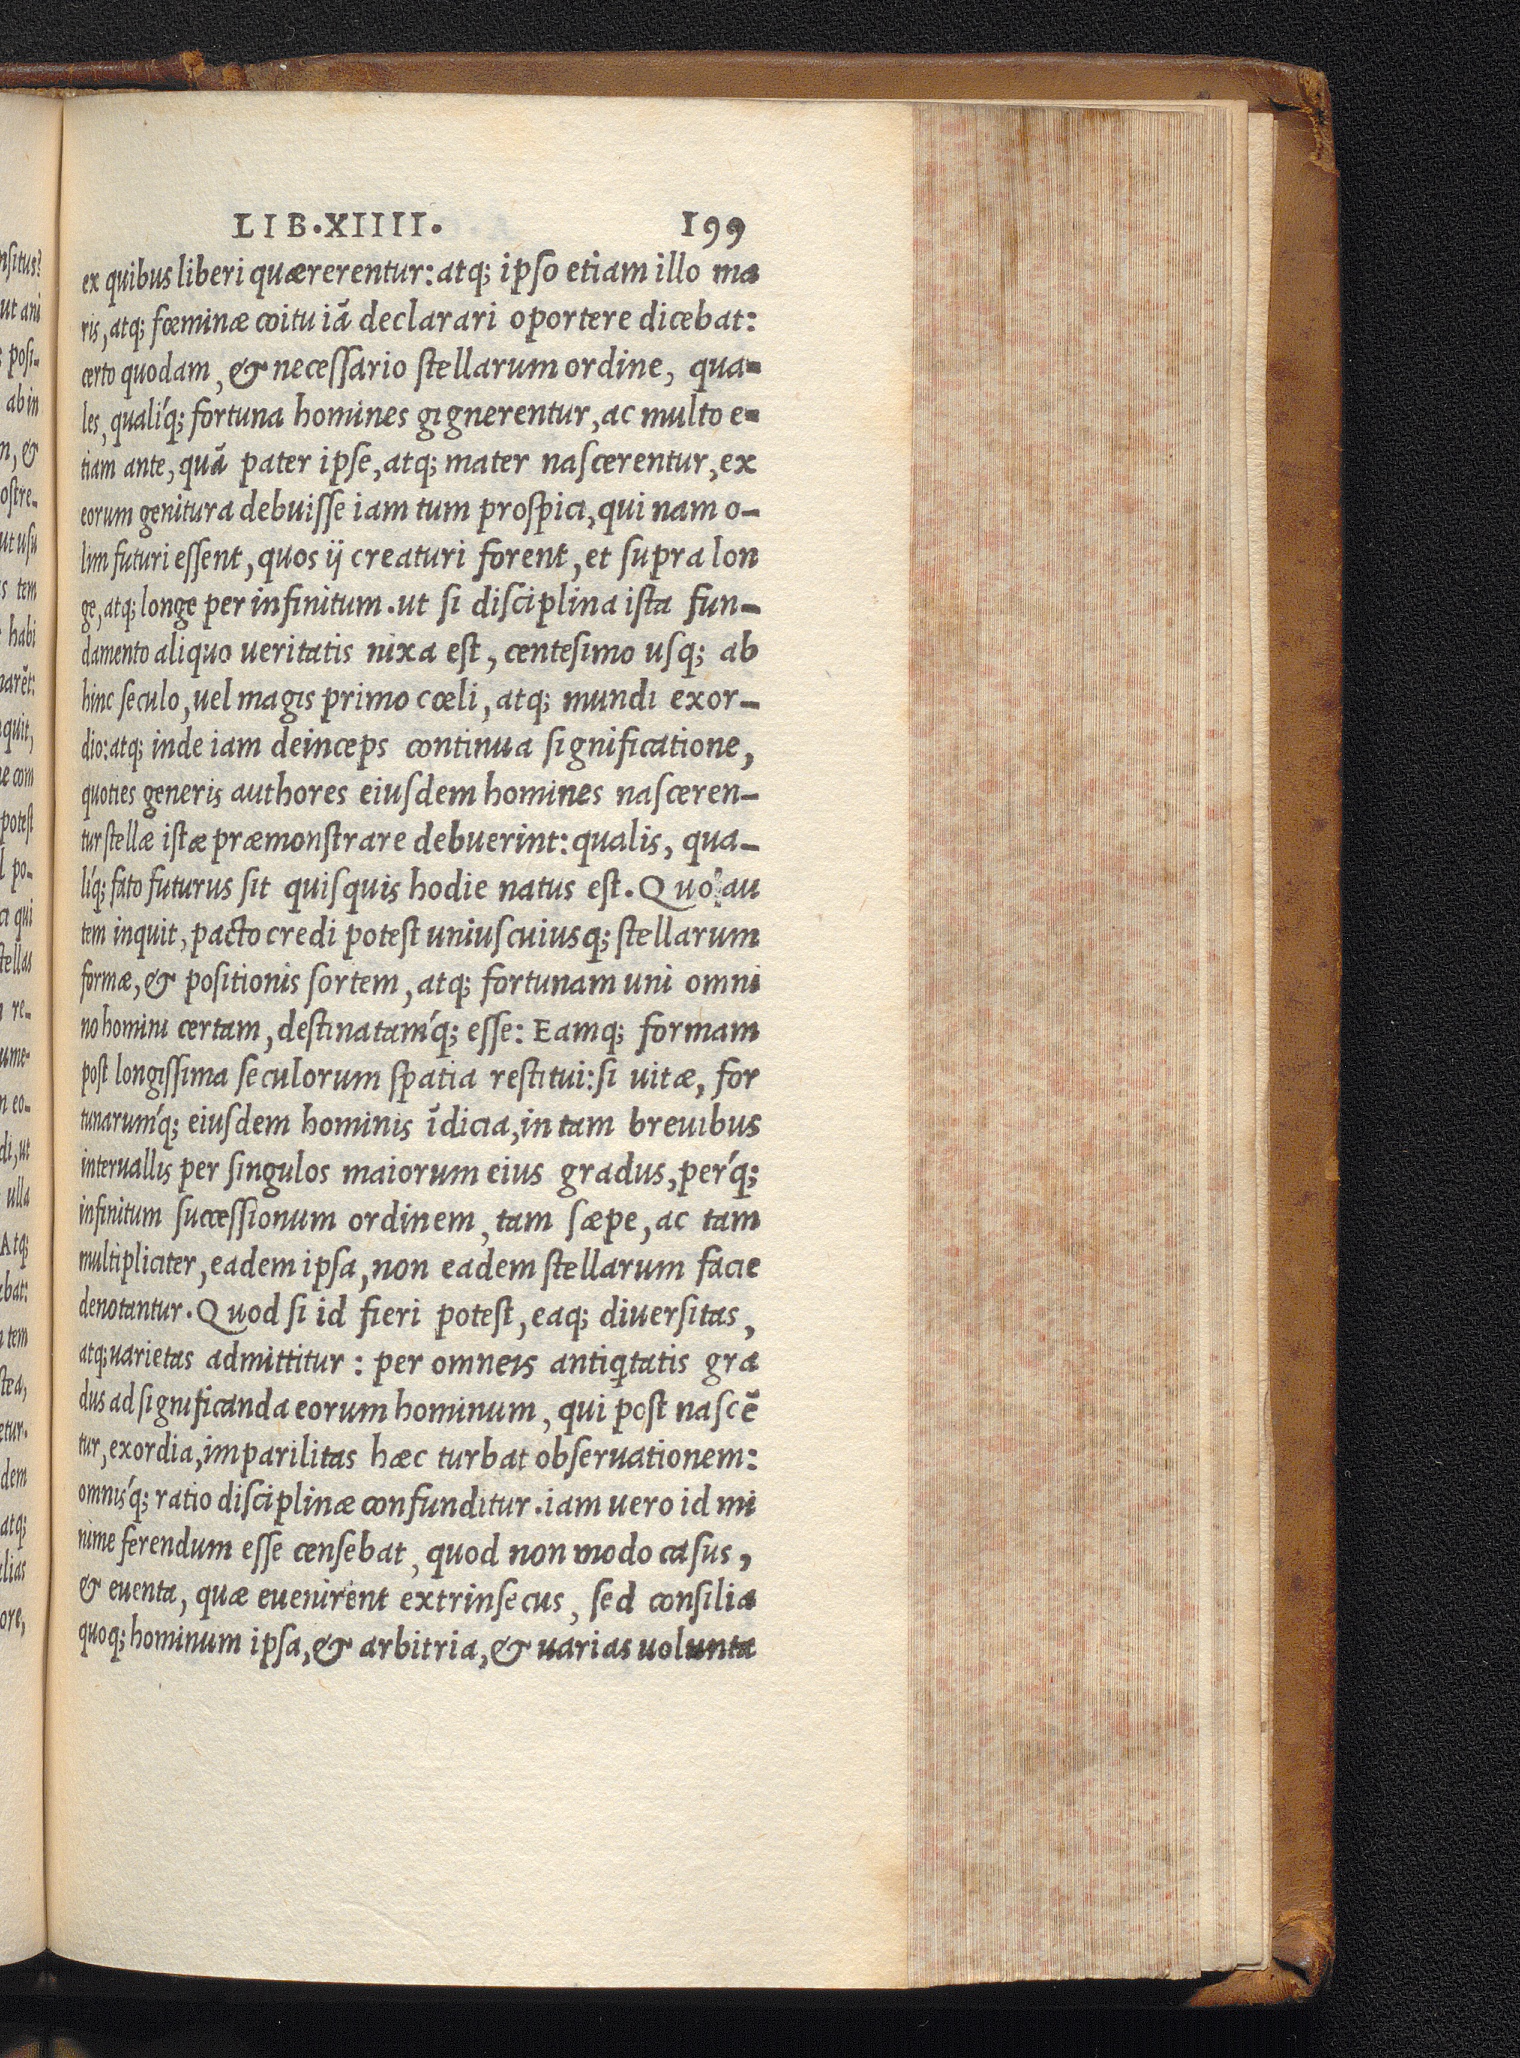 LIB.XIIII. 199
ex quibus liberi quærerentur: atq; ipso etiam illo ma
ris, atq; fœminæ coitu iā declarari oportere dicebat:
certo quodam, & necessario stellarum ordine, qua-
les, qualíq; fortuna homines gignerentur, ac multo e-
tiam ante, quā pater ipse, atq; mater nascerentur, ex
eorum genitura debuisse iam tum prospici, qui nam o-
lim futuri essent, quos ij creaturi forent, et supra lon
ge, atq; longe per infinitum. ut si disciplina ista fun-
damento aliquo ueritatis nixa est, centesimo usq; ab
hinc seculo, uel magis primo cœli, atq; mundi exor-
dio: atq; inde iam deinceps continua significatione,
quoties generis authores eiusdem homines nasceren-
tur stellæ istæ præmonstrare debuerint: qualis, qua-
líq; fato futurus sit quisquis hodie natus est. Quo au
tem inquit, pacto credi potest uniuscuiusq; stellarum
formæ, & positionis sortem, atq; fortunam uni omni
no homini certam, destinatamq́; esse: Eamq; formam
post longissima seculorum spatia restitui: si uitæ, for
tunarumq́; eiusdem hominis īdicia, in tam breuibus
interuallis per singulos maiorum eius gradus, perq́;
infinitum successionum ordinem, tam sæpe, ac tam
multipliciter, eadem ipsa, non eadem stellarum facie
denotantur. Quod si id fieri potest, eaq; diuersitas,
atq; uarietas admittitur: per omneis antiq̣tatis gra
dus ad significanda eorum hominum, qui post nascē
tur, exordia, imparilitas hæc turbat obseruationem:
omnisq́; ratio disciplinæ confunditur. iam uero id mi
nime ferendum esse censebat, quod non modo casus,
& euenta, quæ euenirent extrinsecus, sed consilia
quoq; hominum ipsa, & arbitria, & uarias uolunta